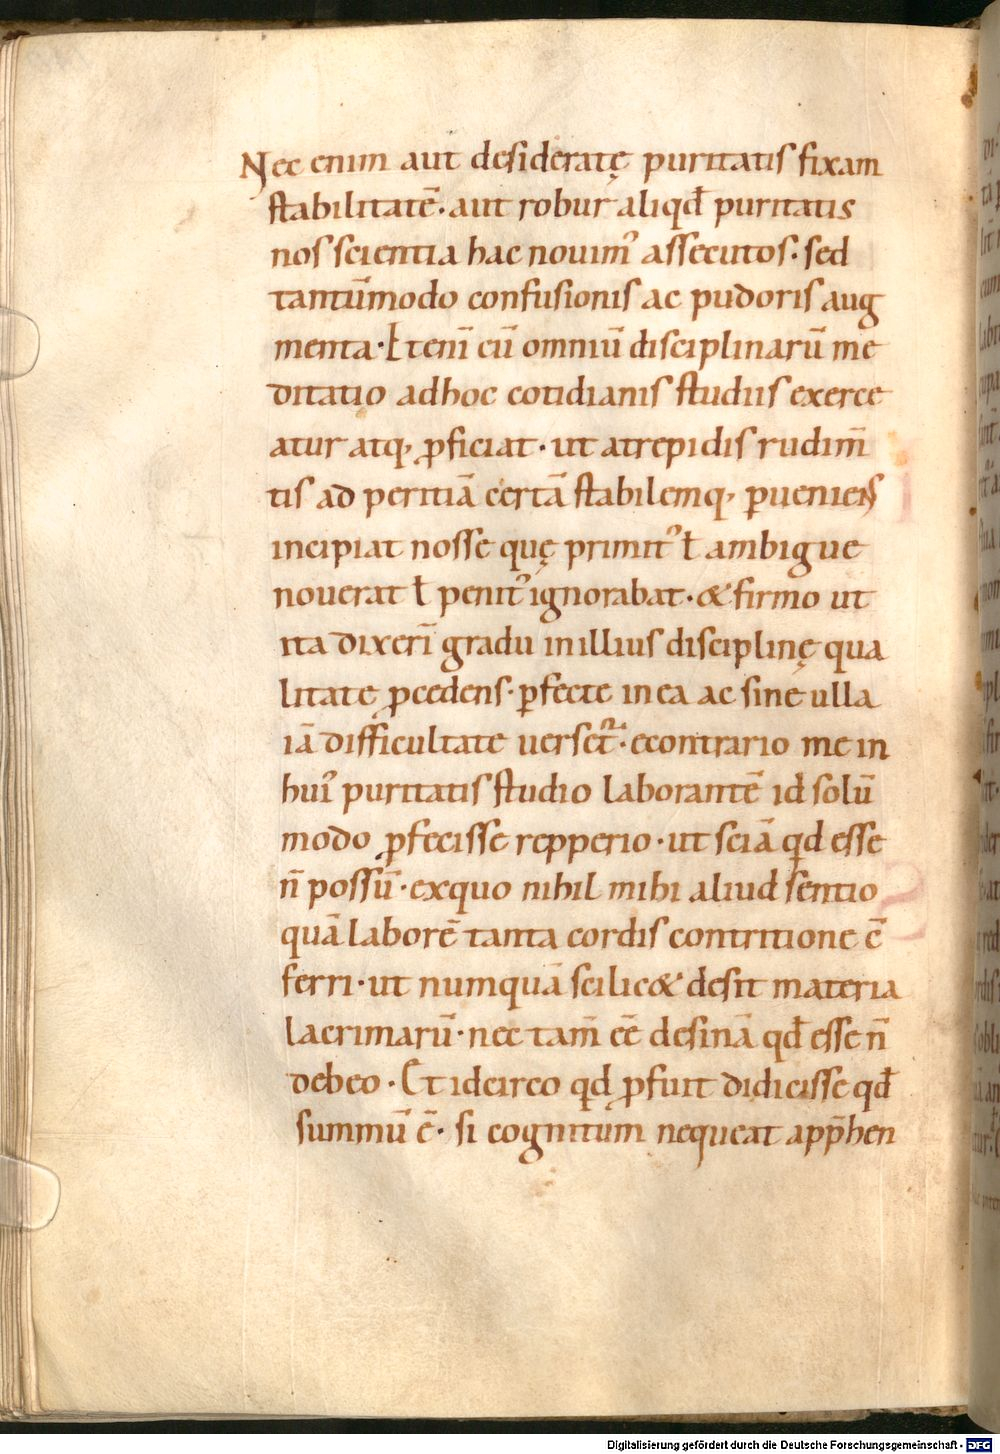 Nec enim aut desideratę puritatis fixam
stabilitatē· aut robur aliqđ puritatis
nos scientia hac novim᾿ assecutos· sed
tantūmodo confusionis ac pudoris aug
menta· Etenī cū omniū disciplinarū me
ditatio adhoc cotidianis studiis exerce
atur atq, ꝓficiat· ut atrepidis rudim̄
tis ad peritiā certā stabilemq, ꝑveniens
incipiat nosse quę primit᾿ ł ambigue
noverat ł penit᾿ ignorabat· & firmo ut
ita dixerī gradu inillius disciplinę qua
litate ꝓcedens· ꝑfecte in ea ac sine ulla
iā difficultate verset᷑· econtrario me in
hui᾿ puritatis studio laborantē id solū
modo ꝓfecisse repperio· ut sciā qđ esse
n̄ possū· exquo nihil mihi aliud sentio
quā laborē tanta cordis contritione c̄
ferri· ut numquā scilic& desit materia
lacrimarū· nec tam̄ ēē desinā qđ esse n̄
debeo· Et idcirco qđ ꝓfuit didicisse qđ
summū ē· si cognitum nequeat app̄hen
Digitalisierung gefördert durch die Deutsche Forschungsgemeinschaft - DFG